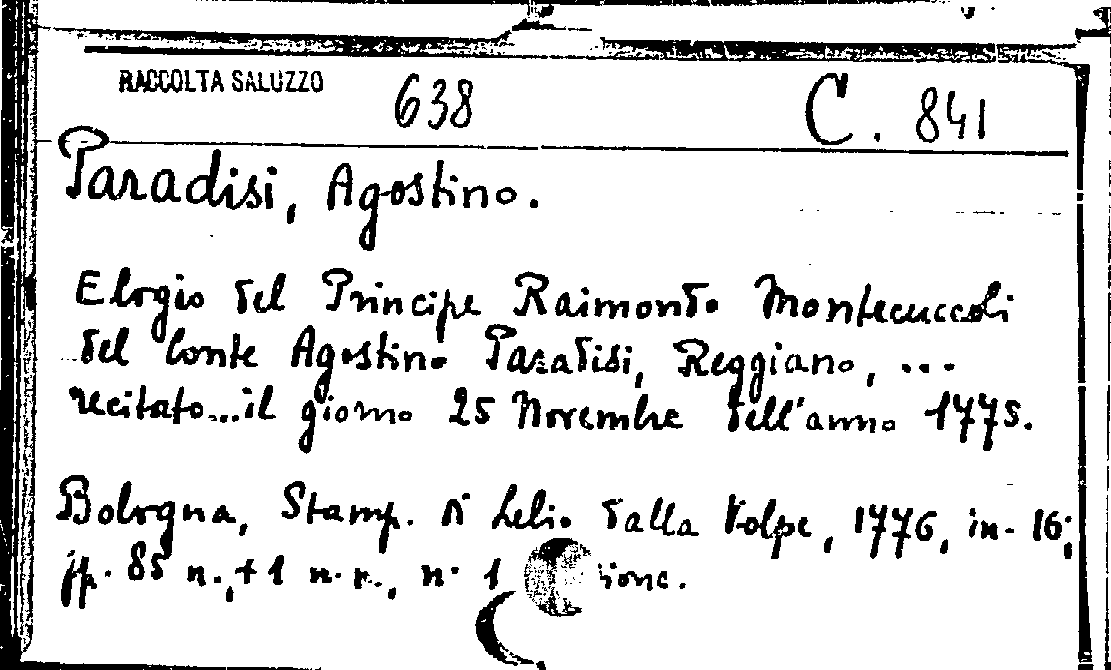 RACCOLTA SALUZZO 638 C. 841
Paradisi, Agostino.
Elogio del Principe Raimondo Montecuccoli
del Conte Agostino Paradisi, Reggiano, ...
recitato...il giorno 25 Novembre dell'anno 1775.
Bologna, Stamp. di Lelio dalla Volpe, 1776, in-16;
pp. 85 n.,+1 n.n., n. 1